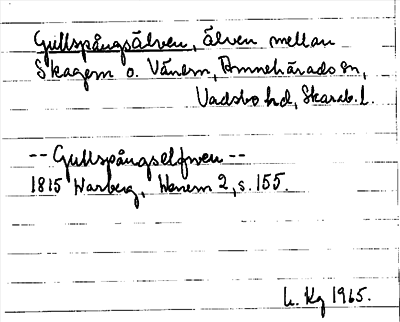 Gullspångsälven, älven mellan
Skagern o. Vänern, Amnehärads sn,
Vadsbo hd, Skarab. l.
-- Gullspångselfwen --
1815 Warberg, Wenern 2, s. 155.
Kg 1965.